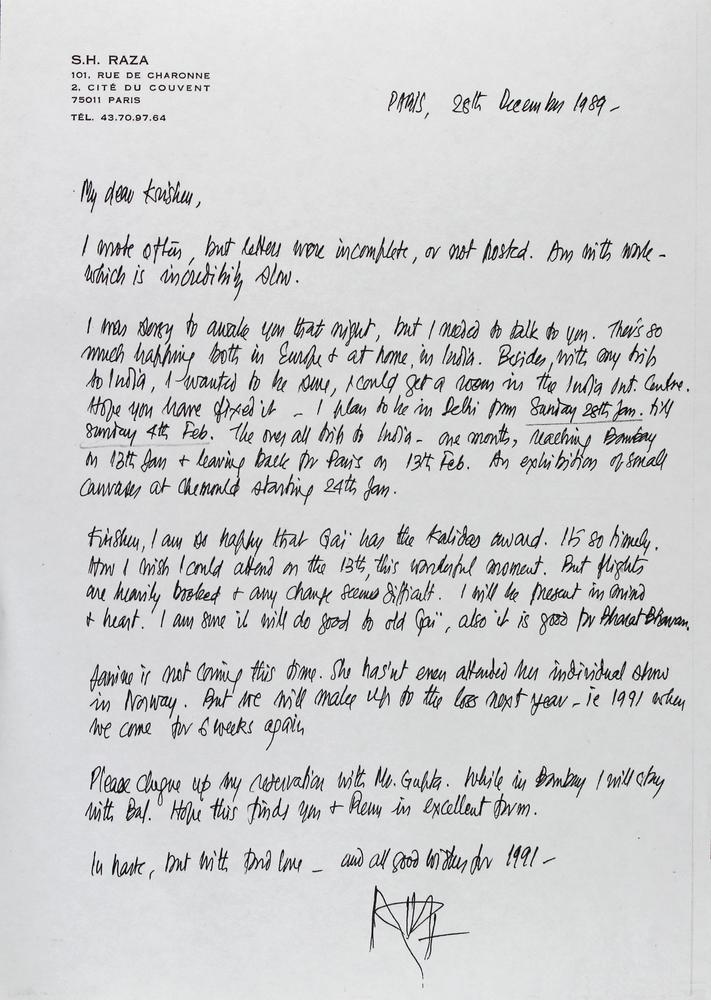 S.H. RAZA
101, RUE DE CHARONNE
2, CITÉ DU COUVENT
75011 PARIS
TÉL. 43.70.97.64
PARIS, 28th December 1989 -
My dear Krishen,
I wrote often, but letters were incomplete, or not posted. Am with work -
which is incredibily slow.
I was sorry to awake you that night, but I needed to talk to you. There's so
much happing both in Europe + at home, in India. Besides, with my trip
to India, I wanted to be sure, I could get a room in the India Int. Centre.
Hope you have fixed it - I plan to be in Delhi from Sunday 28th Jan. till
Sunday 4th Feb. The over all trip to India - one month, reaching Bombay
on 13th Jan + leaving back for Paris on 13th Feb. An exhibition of small
canvases at Chemould starting 24th Jan.
Krishen, I am so happy that Gai has the Kalidas award. It's so timely.
How I wish I could attend on the 13th, this wonderful moment. But flights
are heavily booked + any change seems difficult. I will be present in mind
+ heart. I am sure it will do good to old Gai", also it is good for Bharat Bhavan.
Janine is not coming this time. She has'nt even attended her individual show
in Norway. But we will make up to the loss next year - ie 1991 when
we come for 6 weeks again
Please up my reservation with Mr. Gupta. While in Bombay I will stay
with Bal. Hope this finds you + Renu in excellent form.
In haste, but with fond love - and all good wishes for 1991 -